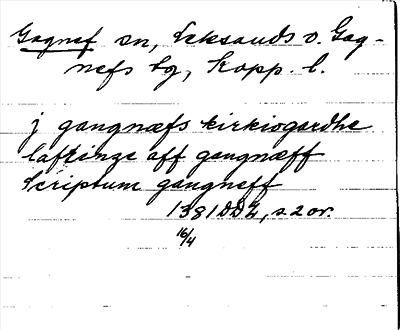 Gagnef sn, Leksands o. Gag-
nefs tg, Kopp. l.
j gangnæfs kirkiogardhe
laffrinze aff gangnæff
Scriptum gangneff
1381 DDZ, s 2 or.
16/4